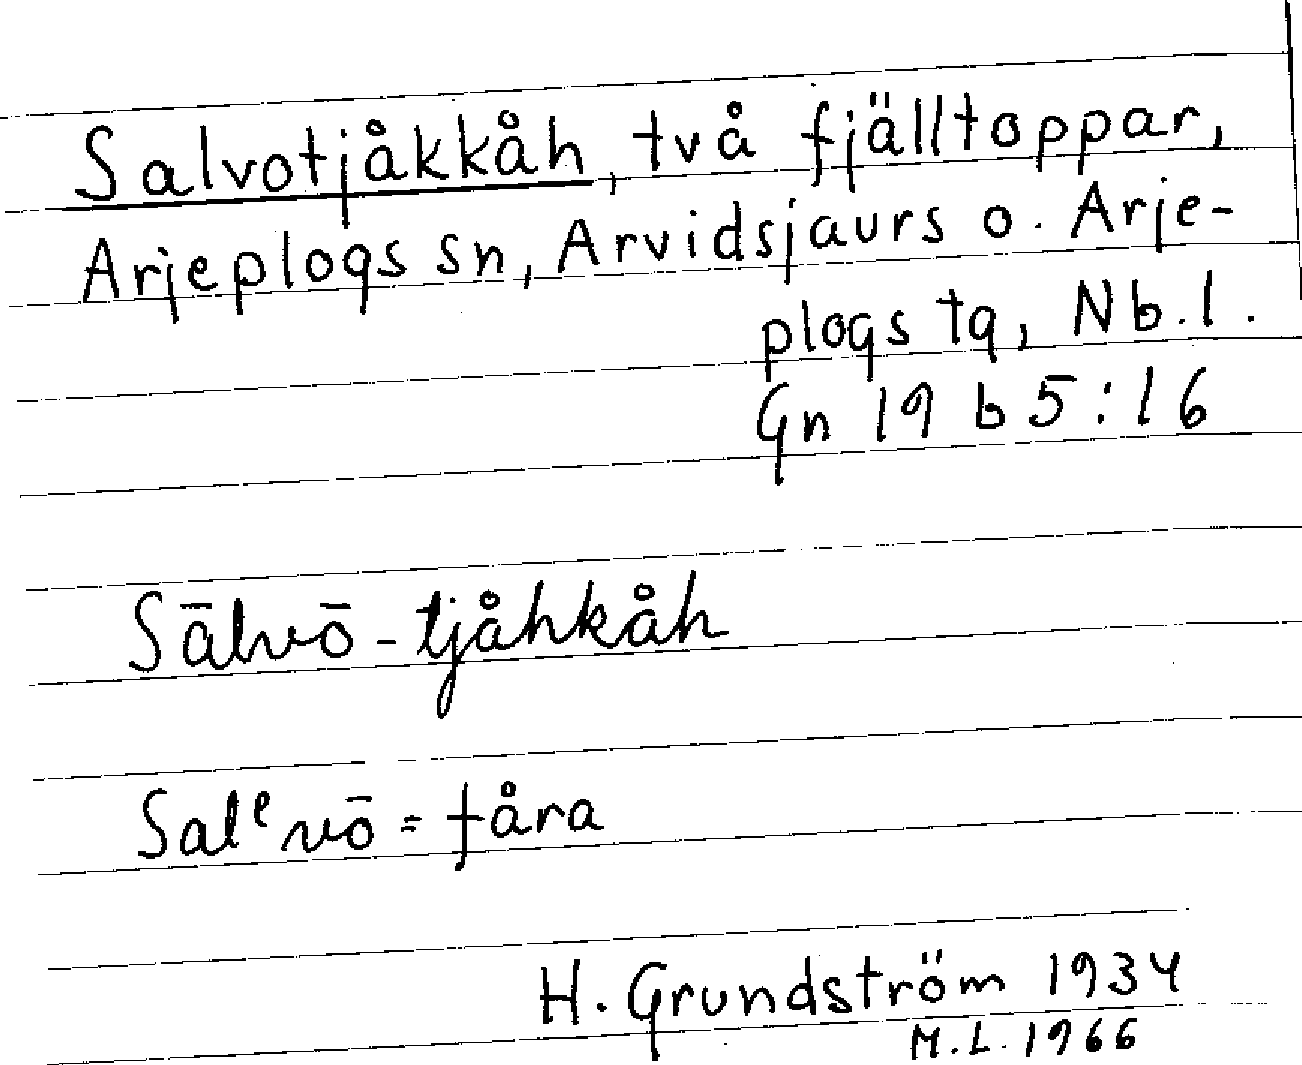 Salvotjåkkåh, två fjälltoppar,
Arjeplogs sn, Arvidsjaurs o. Arje-
plogs tg, Nb. l.
Gn 19 b 5:16
Sālvō-tjåhkåh
Salᵉvō = fåra
H. Grundström 1934
M.L. 1966